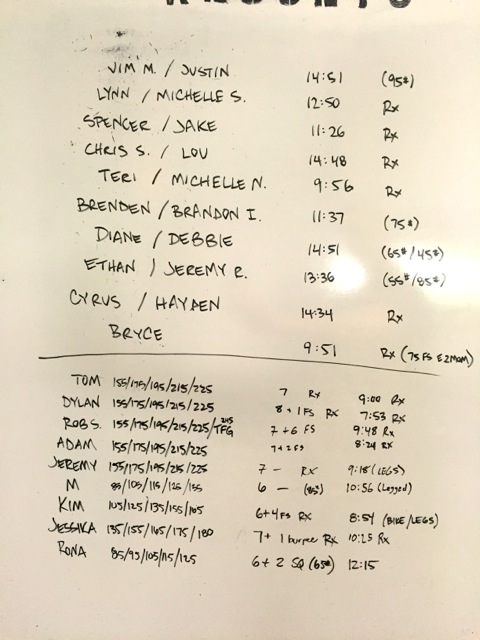 RESULTS
JIM M. / JUSTIN 14:51 (95#)
LYNN / MICHELLE S. 12:50 Rx
SPENCER / JAKE 11:26 Rx
CHRIS S. / LOU 14:48 Rx
TERI / MICHELLE N. 9:56 Rx
BRENDEN / BRANDON I. 11:37 (75#)
DIANE / DEBBIE 14:51 (65#/45#)
ETHAN / JEREMY R. 13:36 (55#/85#)
CYRUS / HAYDEN 14:34 Rx
BRYCE 9:51 Rx (75 FS E2MOM)
TOM 155/175/195/215/225 7 Rx 9:00 Rx
DYLAN 155/175/195/215/225 8 + 1 FS Rx 7:53 Rx
ROB S. 155/175/195/215/225/ TFG 7 + 6 FS 9:48 Rx
ADAM 155/175/195/215/225 7 + 2 FS 8:24 Rx
JEREMY 155/175/195/215/225 7 - Rx 9:18 (LEGS)
M 85/105/115/125/135 6 - (85#) 10:56 (Legged)
KIM 105/125/135/155/165 6 + 4 FS Rx 8:54 (BIKE/LEGS)
JESSIKA 135/155/165/175/180 7 + 1 burpee Rx 10:25 Rx
RONA 85/95/105/115/125 6 + 2 SQ (65#) 12:15